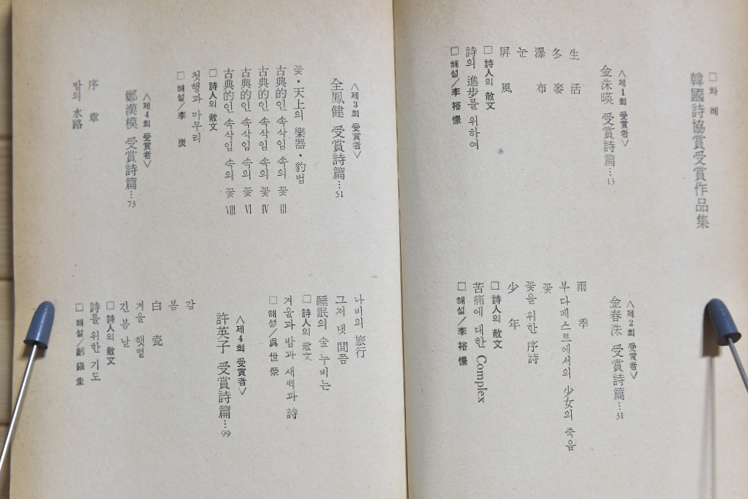 □ 차 례
韓國詩協賞受賞作品集
〈제1회 受賞者〉
金洙暎 受賞詩篇…13
生 活
冬 麥
瀑 布
눈
屛 風
□ 詩人의 散文
詩의 進步를 위하여
□ 해설／李裕憬
〈제2회 受賞者〉
金春洙 受賞詩篇…31
雨 季
부다페스트에서의 少女의 죽음
꽃
꽃을 위한 序詩
少 年
□ 詩人의 散文
苦痛에 대한 Complex
□ 해설／李裕憬
〈제3회 受賞者〉
全鳳健 受賞詩篇…51
꽃・天上의 樂器・豹범
古典的인 속삭임 속의 꽃 Ⅲ
古典的인 속삭임 속의 꽃 Ⅳ
古典的인 속삭임 속의 꽃 Ⅵ
古典的인 속삭임 속의 꽃 Ⅷ
□ 詩人의 散文
첫행과 마무리
□ 해설／李 炭
〈제4회 受賞者〉
鄭漢模 受賞詩篇…73
序 章
밤의 水路
나비의 旅行
그저 몇 間쯤
睡眠의 숲 누비는
□ 詩人의 散文
겨울과 밤과 새벽과 詩
□ 해설／吳世榮
〈제4회 受賞者〉
許英子 受賞詩篇…99
감
봄
白 瓷
겨울 햇볕
긴 봄날
□ 詩人의 散文
詩를 위한 기도
□ 해설／鄭鎭圭